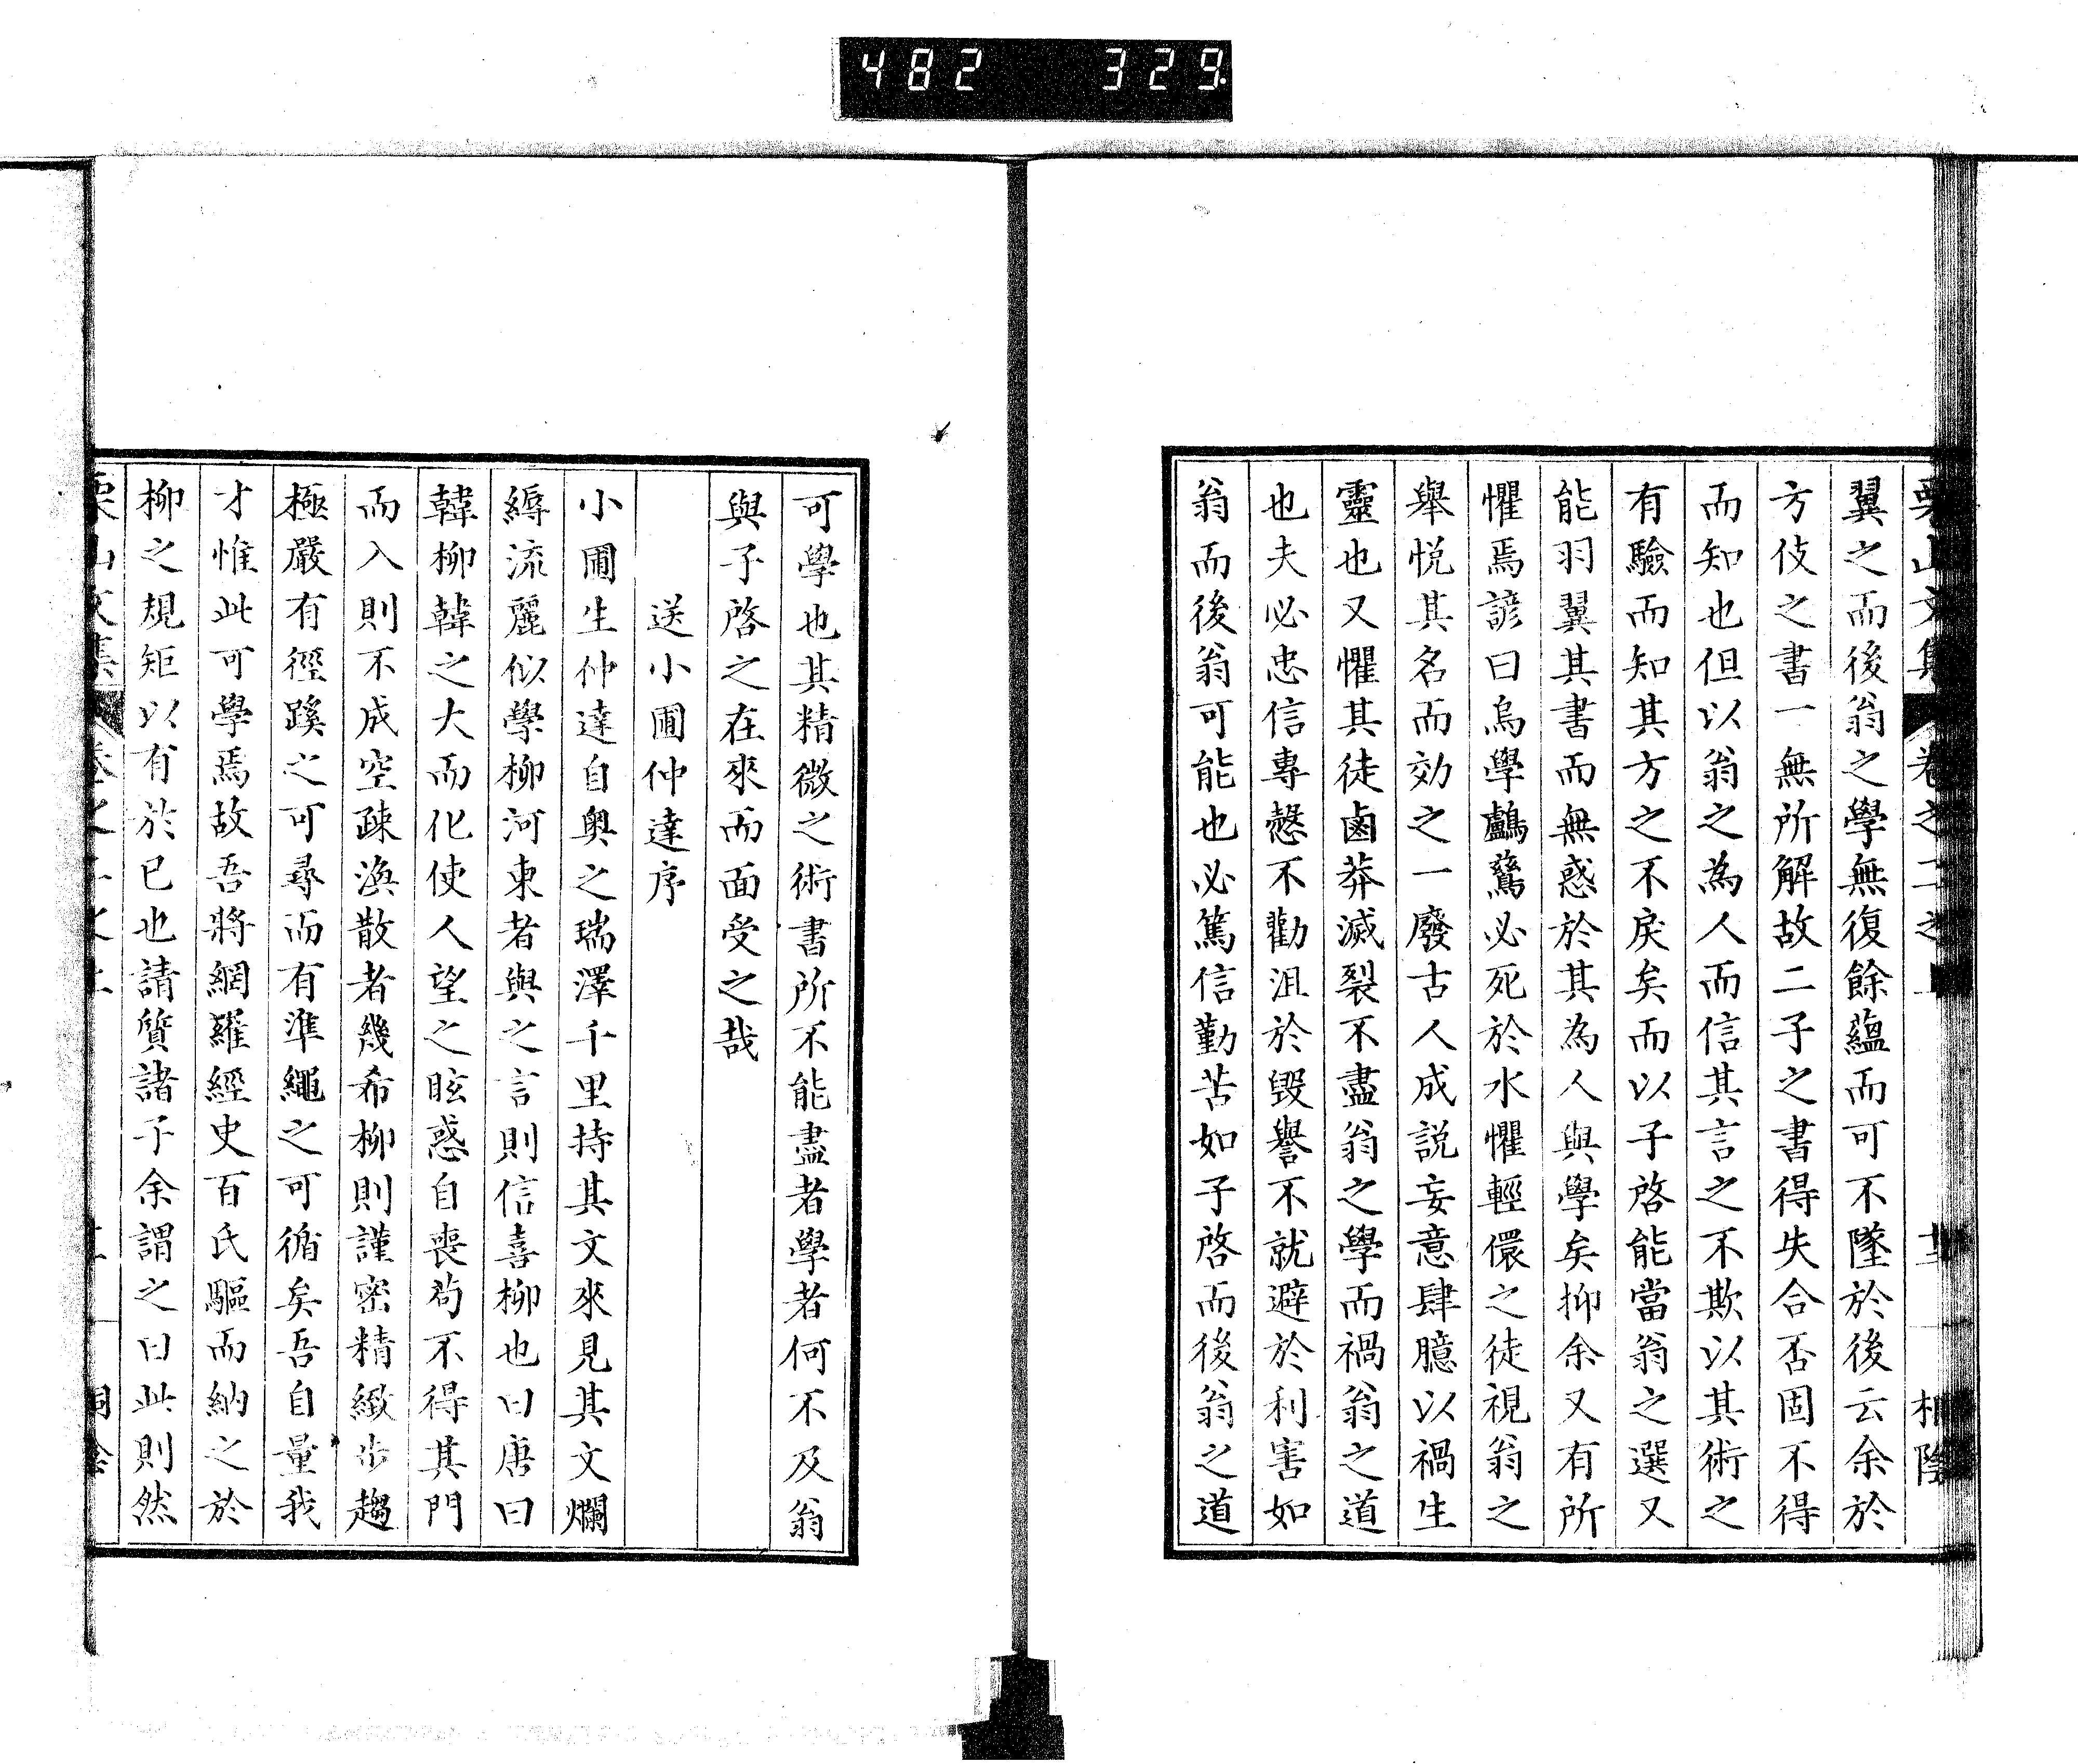 482 329.
栗山文集 卷之二之上 十二 桐陰
翼之而後翁之學無復餘蘊而可不墜於後云余於
方伎之書一無所解故二子之書得失合否固不得
而知也但以翁之為人而信其言之不欺以其術之
有驗而知其方之不戾矣而以子啓能當翁之選又
能羽翼其書而無惑於其為人與學矣抑余又有所
懼焉諺曰烏學鸕鶿必死於水懼輕儇之徒視翁之
舉悅其名而効之一廢古人成說妄意肆臆以禍生
靈也又懼其徒鹵莽滅裂不盡翁之學而禍翁之道
也夫必忠信專愨不勸沮於毀譽不就避於利害如
翁而後翁可能也必篤信勤苦如子啓而後翁之道
可學也其精微之術書所不能盡者學者何不及翁
與子啓之在來而面受之哉
送小圃仲達序
小圃生仲達自奧之瑞澤千里持其文來見其文爛
縟流麗似學柳河東者與之言則信喜柳也曰唐曰
韓柳韓之大而化使人望之眩惑自喪苟不得其門
而入則不成空疎渙散者幾希柳則謹密精緻步趨
極嚴有徑蹊之可尋而有準繩之可循矣吾自量我
才惟此可學焉故吾將網羅經史百氏驅而納之於
柳之規矩以有於已也請質諸子余謂之曰此則然
栗山文集 卷之二之上